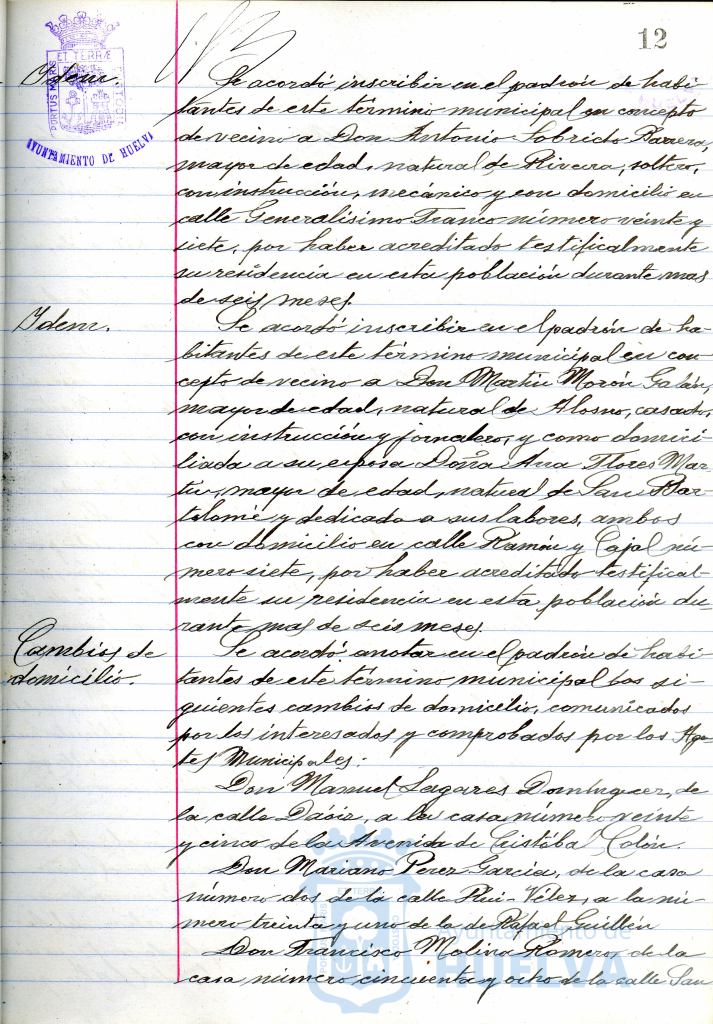 12
ET TERRÆ
PORTUS MARIS
CUSTODIA
AYUNTAMIENTO DE HUELVA
Idem.
Se acordó inscribir en el padrón de habi-
tantes de este término municipal en concepto
de vecino a Don Antonio Sobrido Barrera,
mayor de edad, natural de Riveira, soltero,
con instrucción, mecánico y con domicilio en
calle Generalísimo Franco número veinte y
siete, por haber acreditado testificalmente
su residencia en esta población durante mas
de seis meses.
Idem.
Se acordó inscribir en el padrón de ha-
bitantes de este término municipal en con-
cepto de vecino a Don Martín Morón Galán,
mayor de edad, natural de Alosno, casado,
con instrucción y jornalero, y como domici-
liada a su esposa Doña Ana Flores Mar-
tín, mayor de edad, natural de San Bar-
tolomé y dedicada a sus labores, ambos
con domicilio en calle Ramón y Cajal nú-
mero siete, por haber acreditado testifical-
mente su residencia en esta población du-
rante mas de seis meses.
Cambios de
domicilio.
Se acordó anotar en el padrón de habi-
tantes de este término municipal los si-
guientes cambios de domicilio, comunicados
por los interesados y comprobados por los Agen-
tes Municipales:
Don Manuel Lagares Dominguez, de
la calle Daóiz, a la casa número veinte
y cinco de la Avenida de Cristóbal Colón.
Don Mariano Perez García, de la casa
número dos de la calle Rui-Vélez, a la nú-
mero treinta y uno de la de Rafael Guillén
Don Francisco Molina Romero, de la
casa número cincuenta y ocho de la calle San
Ayuntamiento de
HUELVA